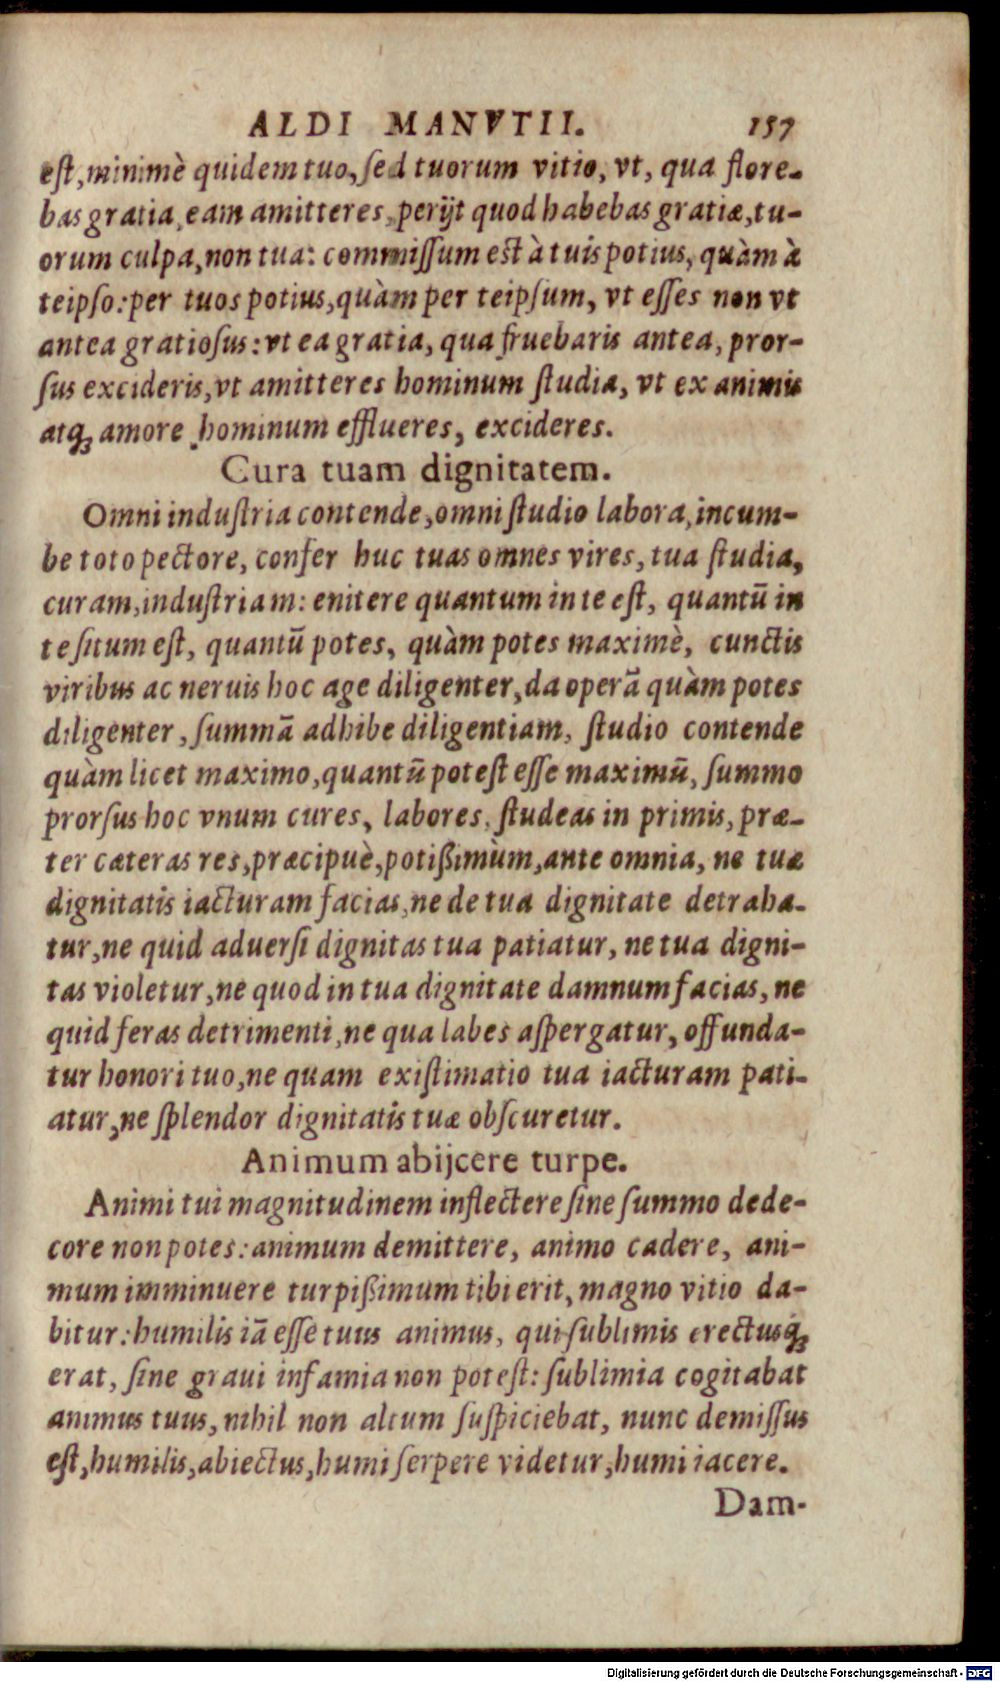 ALDI MANVTII. 157
est, minimè quidem tuo, sed tuorum vitio, vt, qua flore-
bas gratia, eam amitteres, perijt quod habebas gratiæ, tu-
orum culpa, non tua: commissum est à tuis potius, quàm à
teipso: per tuos potius, quàm per teipsum, vt esses non vt
antea gratiosus: vt ea gratia, qua fruebaris antea, pror-
sus excideris, vt amitteres hominum studia, vt ex animis
atq; amore hominum efflueres, excideres.
Cura tuam dignitatem.
Omni industria contende, omni studio labora, incum-
be toto pectore, confer huc tuas omnes vires, tua studia,
curam, industriam: enitere quantum in te est, quantũ in
te situm est, quantũ potes, quàm potes maximè, cunctis
viribus ac neruis hoc age diligenter, da operã quàm potes
diligenter, summã adhibe diligentiam, studio contende
quàm licet maximo, quantũ potest esse maximũ, summo
prorsus hoc vnum cures, labores, studeas in primis, præ-
ter cæteras res, præcipuè, potißimùm, ante omnia, ne tuæ
dignitatis iacturam facias, ne de tua dignitate detraha-
tur, ne quid aduersi dignitas tua patiatur, ne tua digni-
tas violetur, ne quod in tua dignitate damnum facias, ne
quid feras detrimenti, ne qua labes aspergatur, offunda-
tur honori tuo, ne quam existimatio tua iacturam pati-
atur, ne splendor dignitatis tuæ obscuretur.
Animum abijcere turpe.
Animi tui magnitudinem inflectere sine summo dede-
core non potes: animum demittere, animo cadere, ani-
mum imminuere turpißimum tibi erit, magno vitio da-
bitur: humilis iã esse tuus animus, qui sublimis erectusq́;
erat, sine graui infamia non potest: sublimia cogitabat
animus tuus, nihil non altum suspiciebat, nunc demissus
est, humilis, abiectus, humi serpere videtur, humi iacere.
Dam-
Digitalisierung gefördert durch die Deutsche Forschungsgemeinschaft - DFG